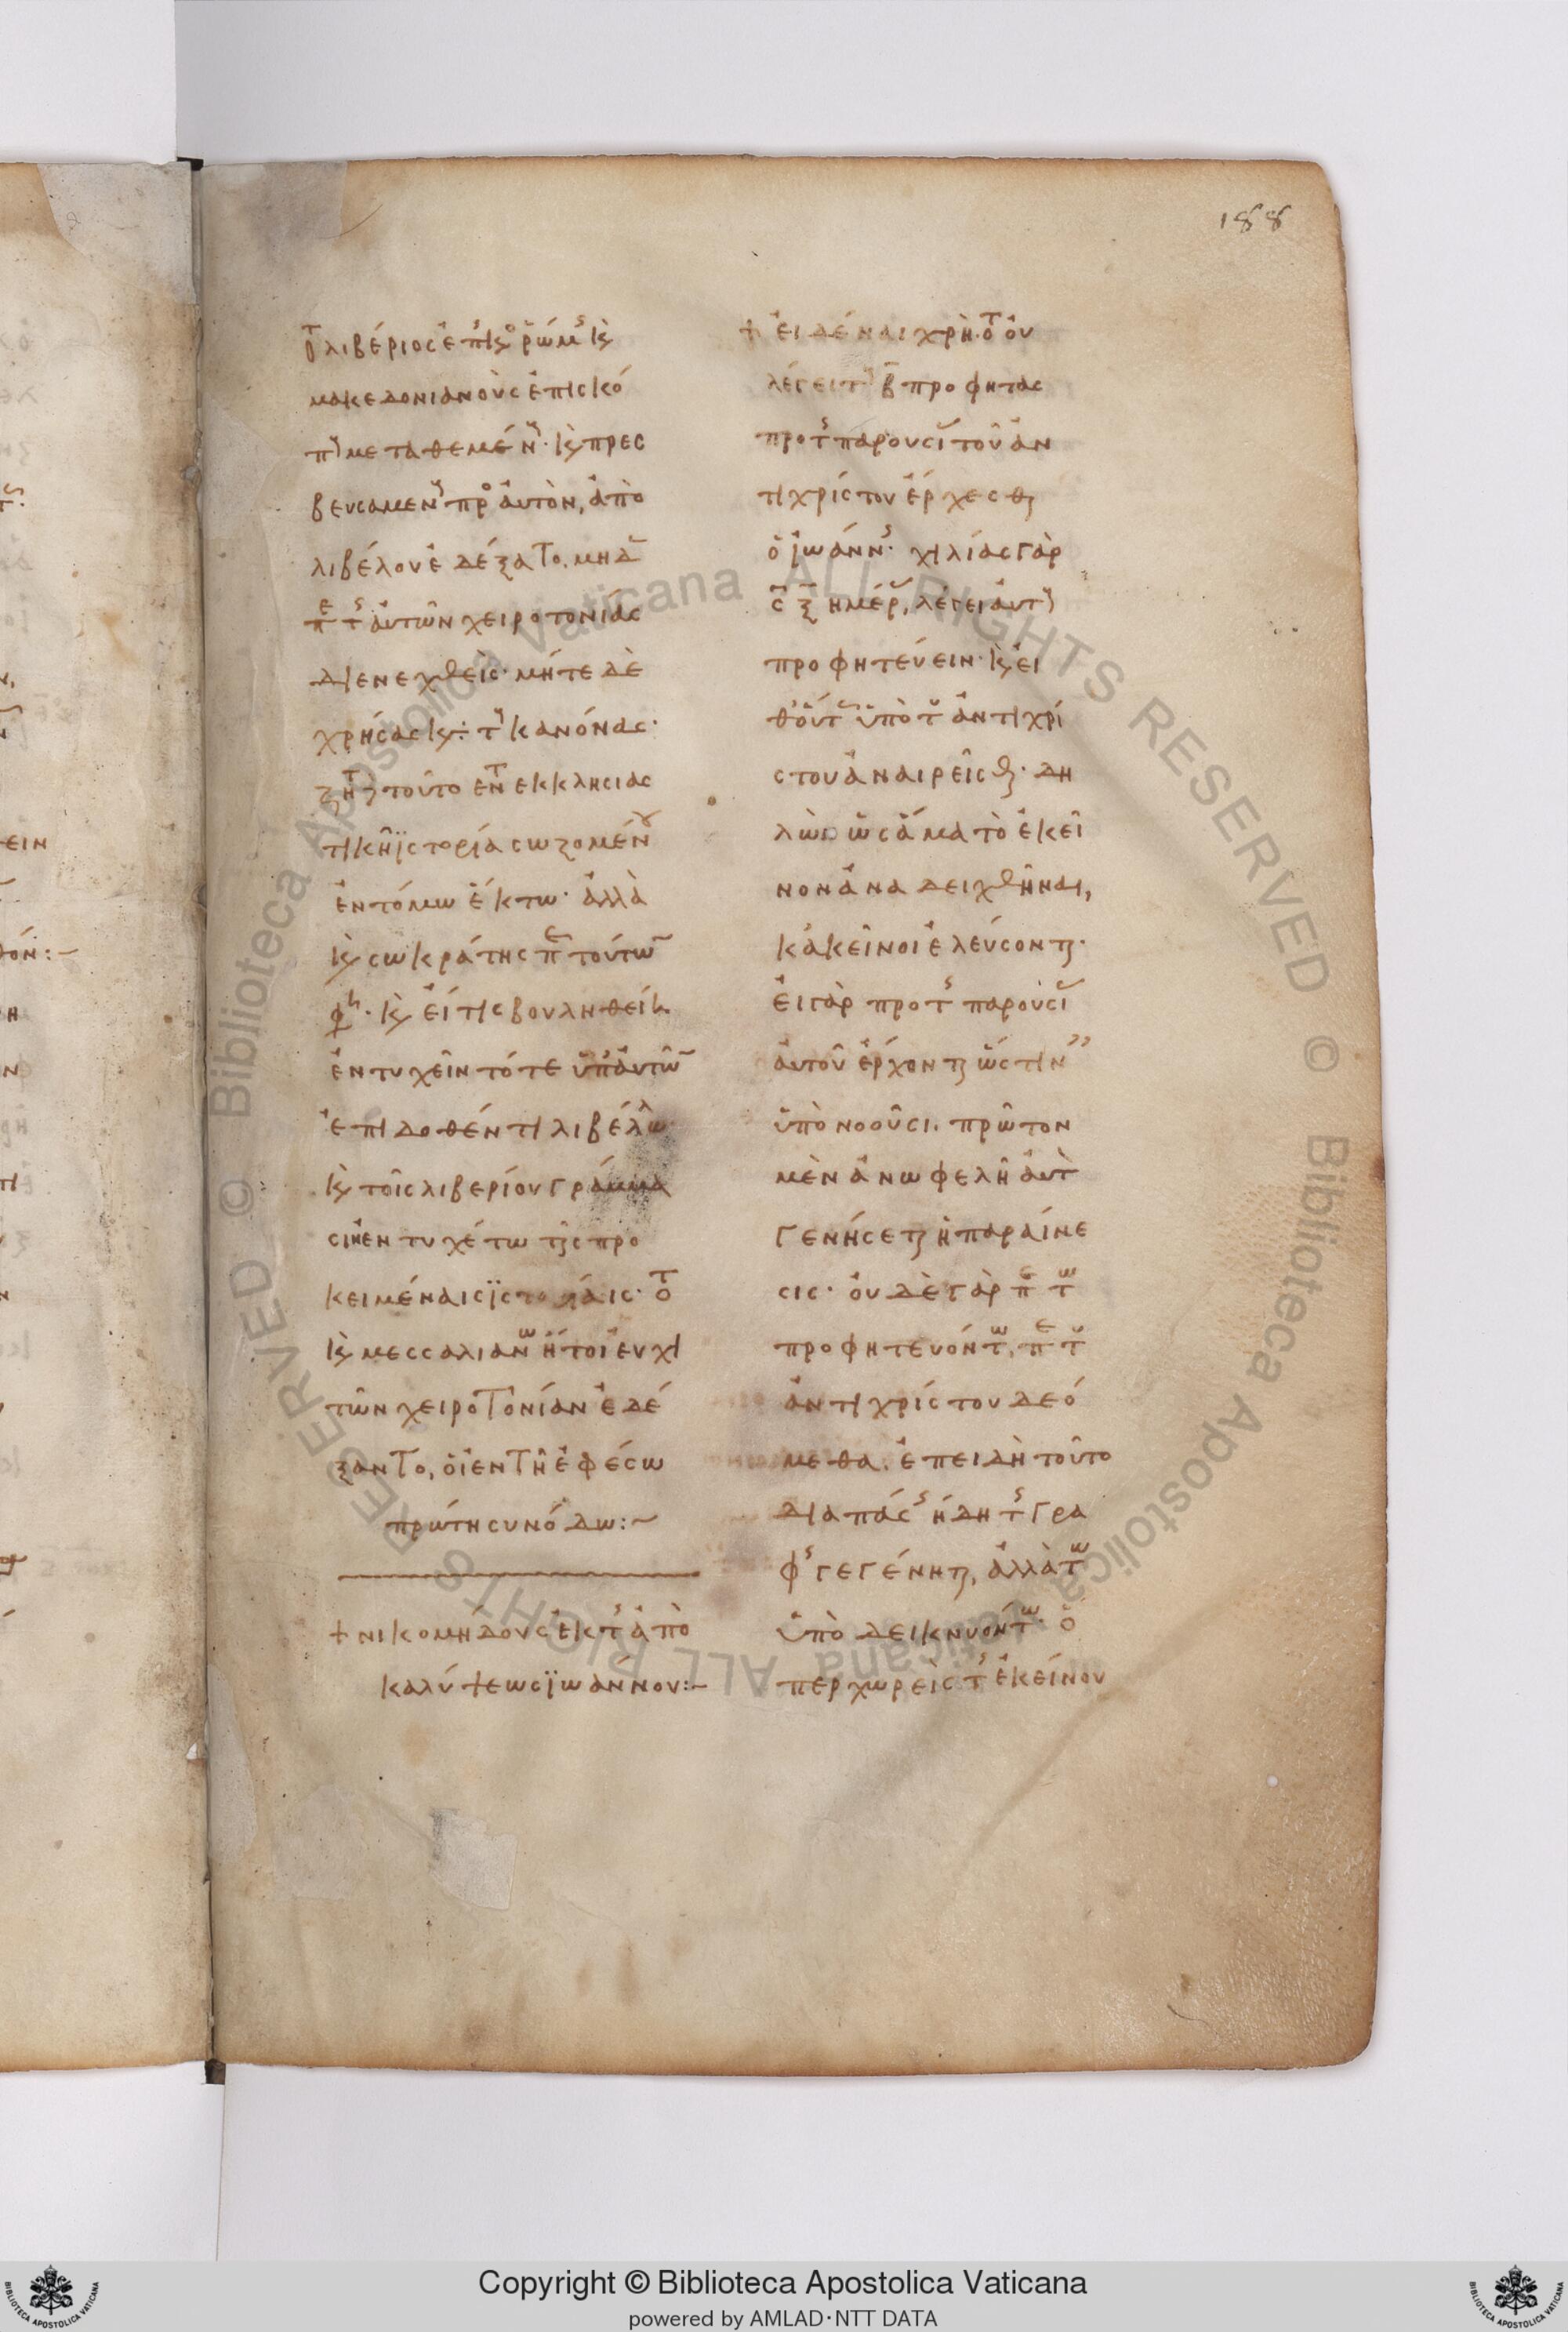 188
ὅτ λιβέριος ἐπίσκο ῥώμς κ
μακεδονιανοὺς ἐπισκό
π μεταθεμέν· κ πρες
βευσαμεν πρ αὐτὸν, ἀπὸ
λιβέλου ἐδέξατο. μηδ
π τ αὐτῶν χειροτονίας
διενεχθεὶς· μήτε δὲ
χρήσας κ ÷ τ κανόνας·
ζητ τοῦτο εν τ εκκλησιας
τικῆ ϊστορία σωζομέν
ἐν τόμω ἕκτω· ἀλλὰ
κ σωκράτης π τούτω
φη· κ εἴ τις βουληθείη
ἐντυχεῖν τότε ὑπ' αὐτῶ
ἐπιδοθέντι λιβέλλω·
κ τοῖς λιβερίου γράμμα
σιν ἐντυχέτω ταῖς προ
κειμέναις ϊστορίαις· ὅτ
κ μεσσαλιαν ἤτοι εὐχι
τῶν χειροτονίαν ἐδέ
ξαντο, οἱ εν τῆ ἐφέσω
πρώτη συνόδω:~
+ νικομήδους ἐκ τ ἀπο
καλύψεως ϊωάννου:~
+ εἰδέναι χρὴ· ὅτ οὐ
λέγει τ β προφήτας
προ τ παρουσί τοῦ ἀν
τιχρίστου ἔρχεσθαι
ὁ ἰωάνν· χιλίας γὰρ
σ ξ ημέρ, λέγει αὐτ
προφητεύειν· κ εἰ
θ' οὕτ ὑπὸ τ ἀντιχρί
στου ἀναιρεῖσθαι· δη
λῶν ὡς ἅμα τὸ ἐκεῖ
νον ἀναδειχθῆναι,
κἀκεῖνοι ἐλεύσονται·
εἰ γὰρ προ τ παρουσί
αὐτοῦ ἔρχονται ὥς τιν
ὑπὸνοοῦσι. πρῶτον
μὲν ἀνωφελῆ αὐτ
γενήσεται ἡ παραίνε
σις· οὐδὲ γὰρ π τ
προφητευόντ, π τ
ἀντιχρίστου δεό
μεθα. ἐπειδὴ τοῦτο
δια πάσ ήδη τ γρα
φ γεγένηται, ἀλλὰ τ
ὑπὸδεικνυόντ· ὅ
περ χωρεὶς τ ἐκείνου
Copyright © Biblioteca Apostolica Vaticana
powered by AMLAD·NTT DATA